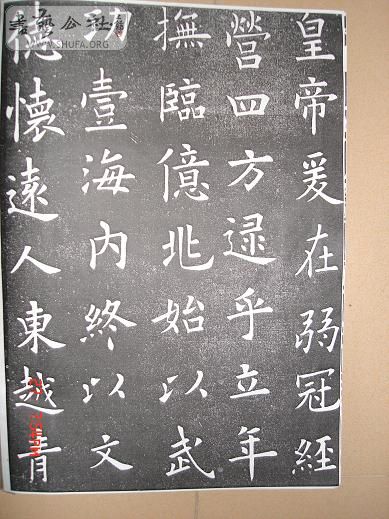 皇帝爰在弱冠經
營四方逯乎立年
撫臨億兆始以武
功壹海內終以文
德懷遠人東越青
書藝公社
WWW.SHUFA.ORG